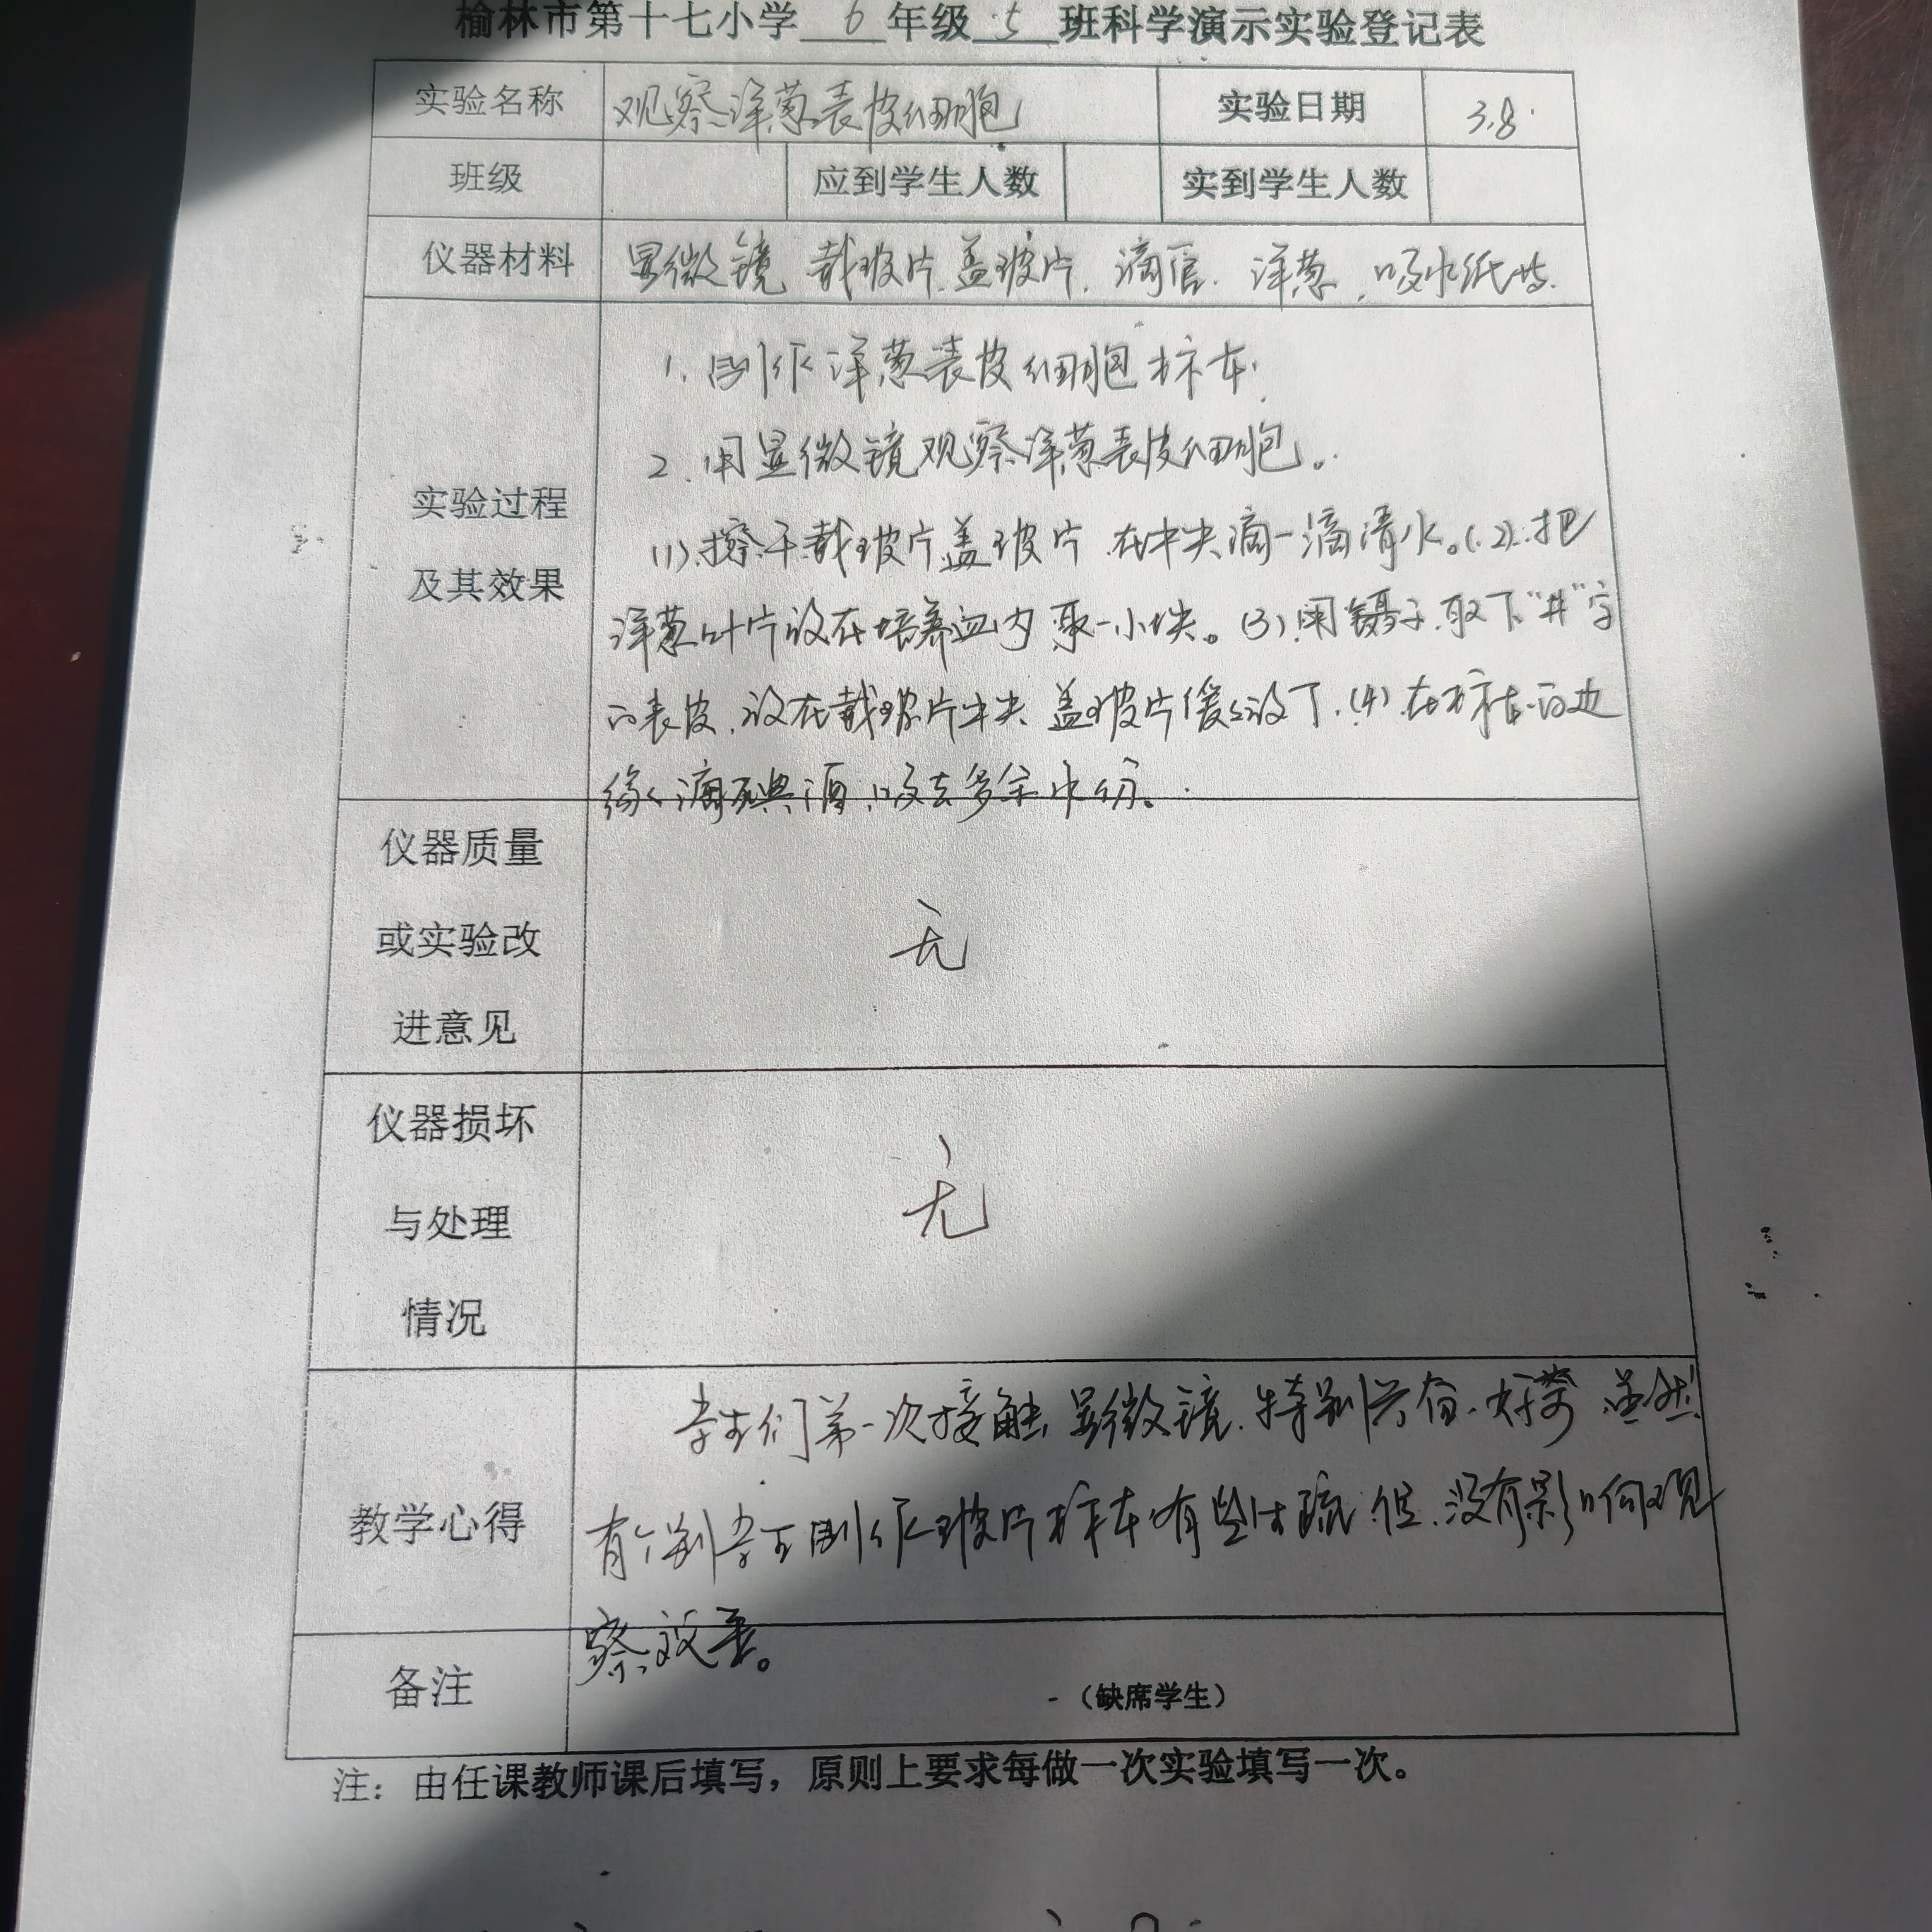 榆林市第十七小学 6 年级 5 班科学演示实验登记表
实验名称 观察洋葱表皮细胞 实验日期 3.8.
班级 应到学生人数 实到学生人数
仪器材料 显微镜 载玻片.盖玻片.滴管.洋葱.吸水纸等.
实验过程
及其效果
1.制作洋葱表皮细胞标本.
2.用显微镜观察洋葱表皮细胞。
(1).擦干载玻片盖玻片.在中央滴一滴清水。(2).把
洋葱叶片放在培养皿内取一小块。(3).用镊子.取下“井”字
的表皮.放在载玻片中央 盖玻片缓缓放下.(4).在标本的边
缘 滴碘酒.吸去多余水份。
仪器质量
或实验改
进意见
无
仪器损坏
与处理
情况
无
教学心得
学生们第一次接触显微镜.特别兴奋.好奇.虽然
有个别学生制作玻片标本有些生疏.但.没有影响观
察效果。
备注
(缺席学生)
注:由任课教师课后填写,原则上要求每做一次实验填写一次。